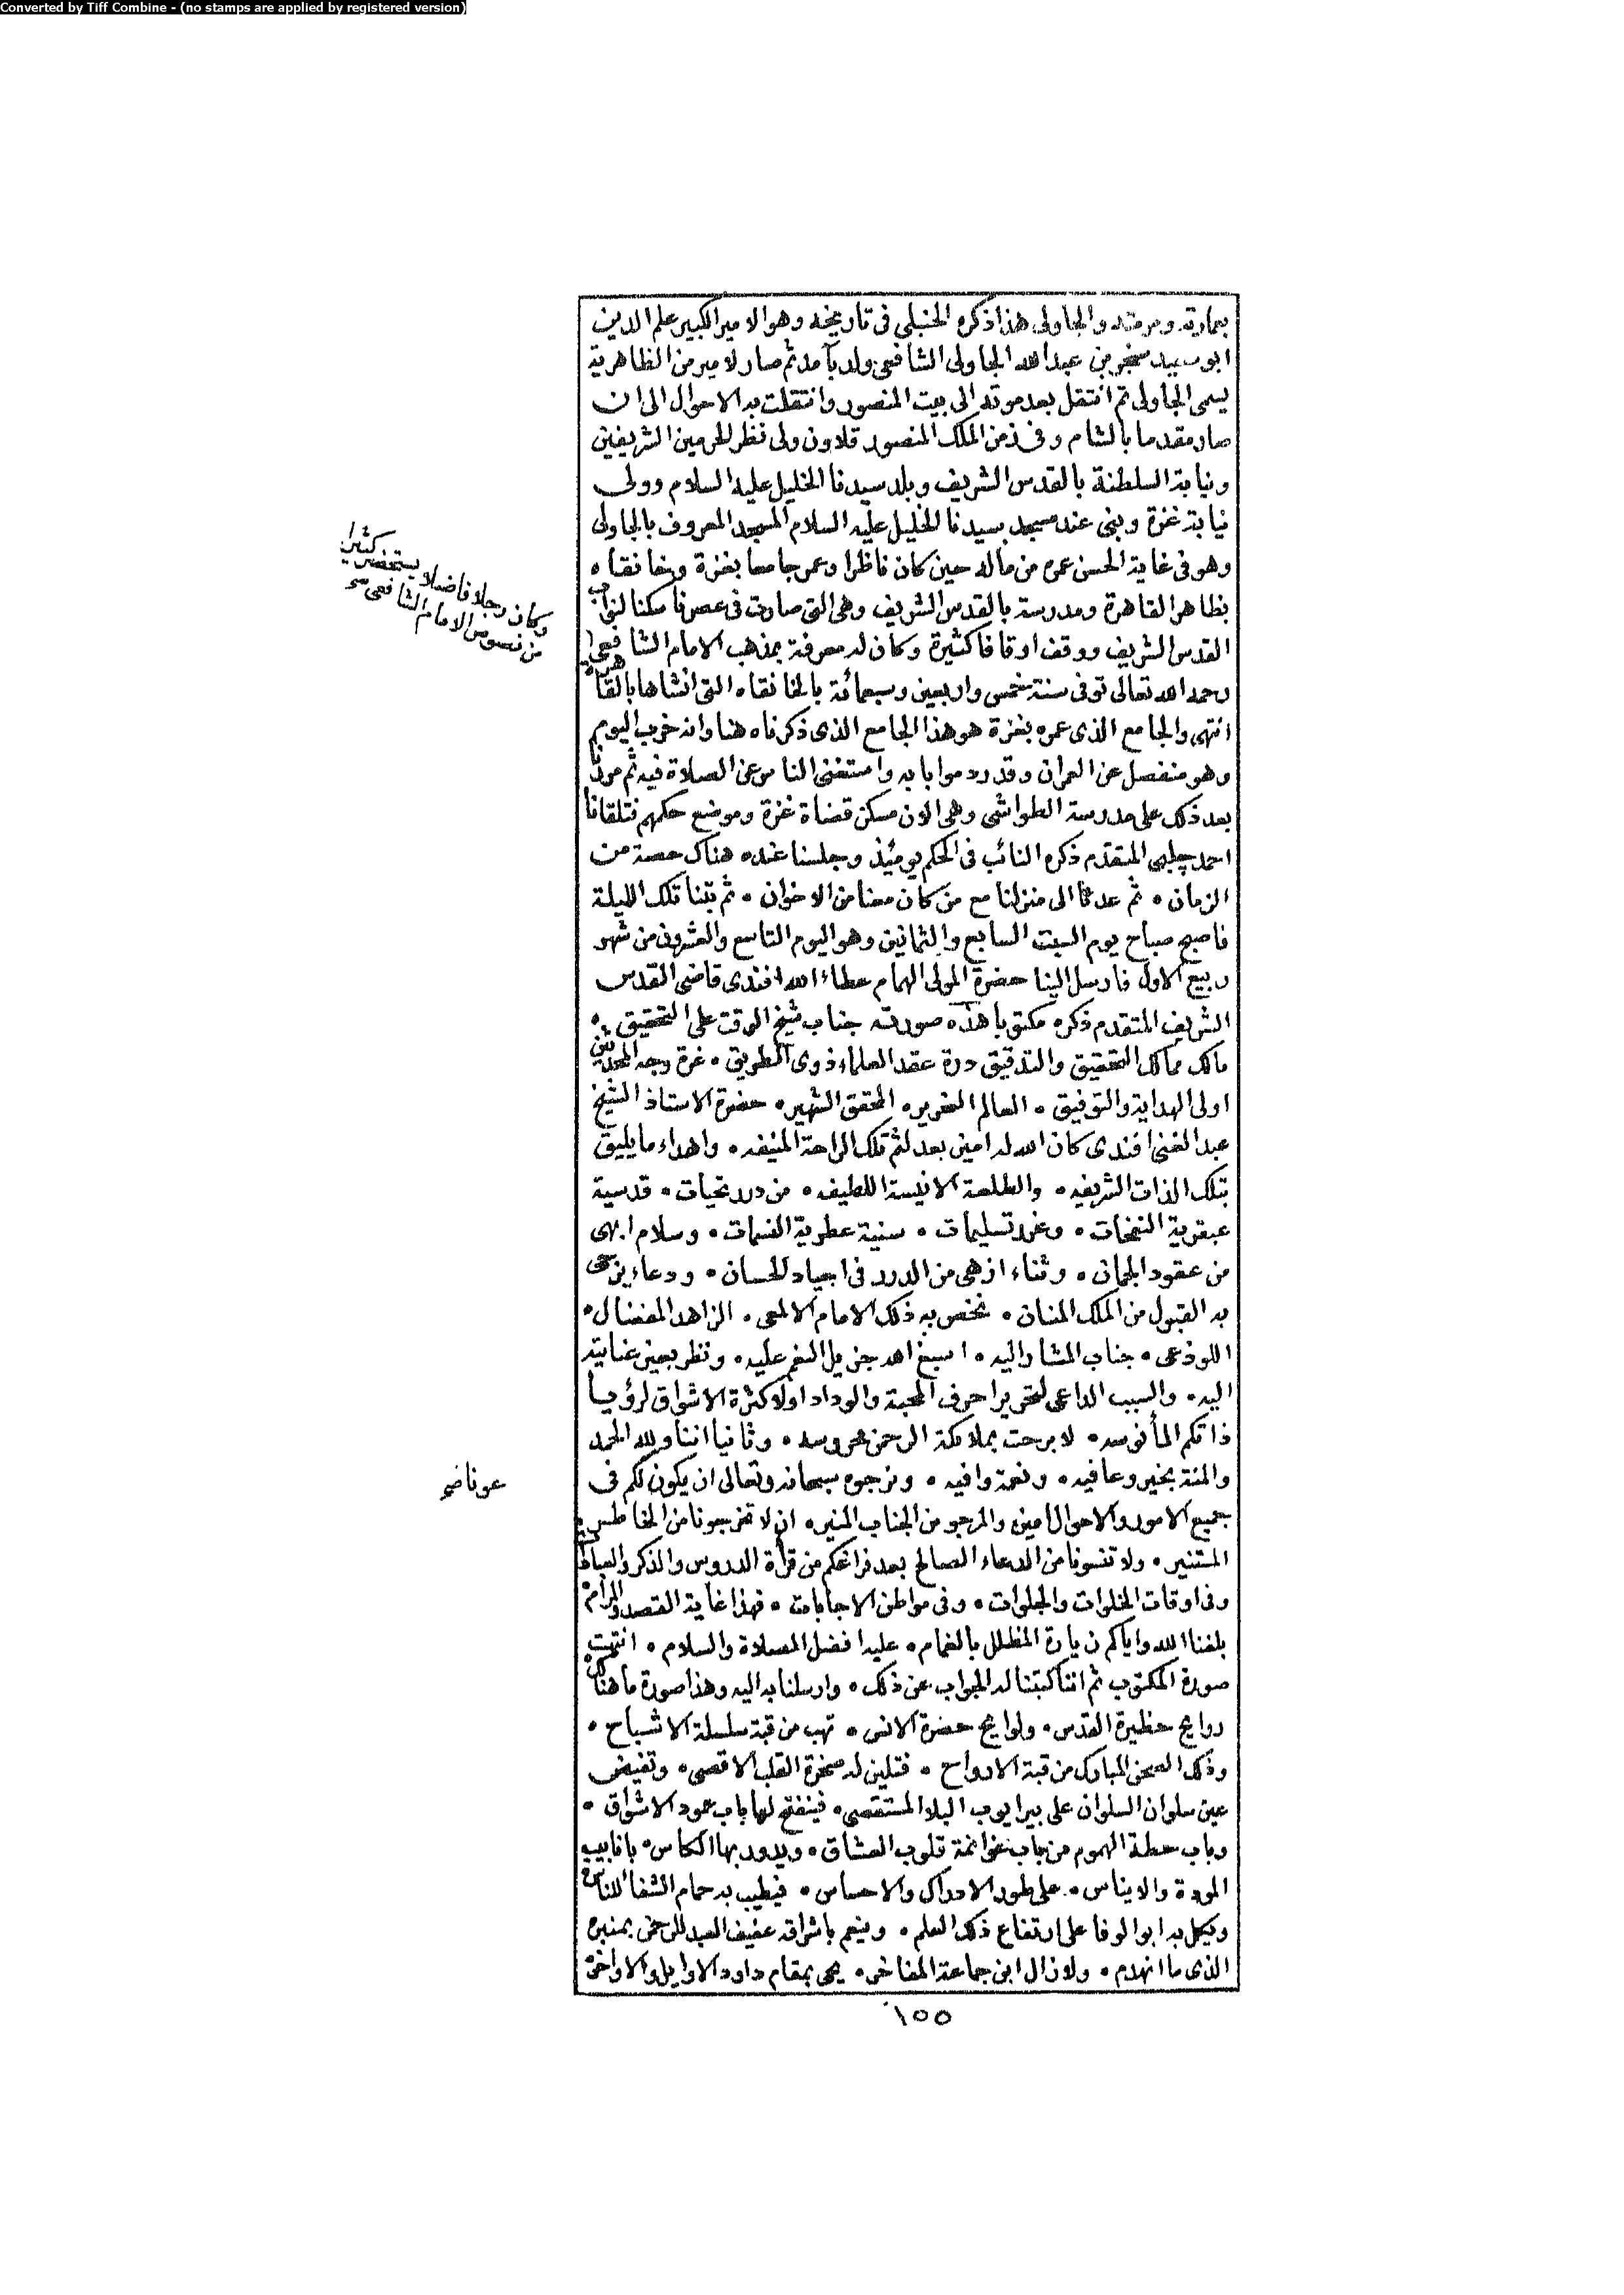 Converted by Tiff Combine - (no stamps are applied by registered version)
بعمارته ومرمته والجاولى هذا ذكره الحنبلى فى تاريخه وهو الامير الكبير علم الدين
ابو سعيد سنجر بن عبد الله الجاولى الشافعى ولد بآمد ثم صار لامير من الظاهرية
يسمى الجاولى ثم انتقل بعد موته الى بيت المنصور وانتقلت به الاحوال الى ان
صار مقدما بالشام وفى زمن الملك المنصور قلاون ولى نظر الحرمين الشريفين
ونيابة السلطنة بالقدس الشريف وبلد سيدنا الخليل عليه السلام وولى
نيابة غزة وبنى عند مسجد سيدنا الخليل عليه السلام المسجد المعروف بالجاولى
وهو فى غاية الحسن عمره من ماله حين كان ناظرا وعمر جامعا بغزة وخانقاه
بظاهر القاهرة ومدرسة بالقدس الشريف وهى التى صارت فى عصرنا مسكنا لنواب
القدس الشريف ووقف اوقافا كثيرة وكان له معرفة بمذهب الامام الشافعى
وكان رجلا فاضلا يستحضر كثيرا
من نصوص الامام الشافعى صح
رحمه الله تعالى توفى سنة خمس واربعين وسبعمائة بالخانقاه التى انشاها بالقاهرة
انتهى والجامع الذى عمره بغزة هو هذا الجامع الذى ذكرناه هنا وانه خرب اليوم
وهو منفصل عن العمران وقد ردموا بابه واستغنى الناس عن الصلاة فيه ثم مررنا
بعد ذلك على مدرسة الطواشى وهى الان مسكن قضاة غزة وموضع حكمهم فتلقانا
احمد چلبى المتقدم ذكره النائب فى الحكم يومئذ وجلسنا عنده هناك حصة من
الزمان • ثم عدنا الى منزلنا مع من كان معنا من الاخوان • ثم بتنا تلك الليلة
فاصبح صباح يوم السبت السابع والثمانين وهو اليوم التاسع والعشرون من شهر
ربيع الاول فارسل الينا حضرة المولى الهمام عطاء الله افندى قاضى القدس
الشريف المتقدم ذكره مكتوبا هذه صورته جناب شيخ الوقت على التحقيق •
مالك ممالك التحقيق والتدقيق درة عقد العلماء ذوى الطريق • غرة وجه المحدثين
اولى الهداية والتوفيق • العالم النحرير • المحقق الشهير • حضرة الاستاذ الشيخ
عبد الغنى افندى كان الله له امين بعد لثم تلك الراحة المنيفه • واهداء ما يليق
بتلك الذات الشريفه • والطلعة الانيسة اللطيفه • من درر تحيات • قدسية
عبقرية النفحات • وغرر تسليمات • سنية عطرية النسمات • وسلام ابهى
من عقود الجمان • وثناء ازهى من الدرر فى اجياد الحسان • ودعاء يرتجى
به القبول من الملك المنان • نخص به ذلك الامام الالمعى • الزاهد المفضال •
اللوذعى • جناب المشار اليه • اسبغ الله جزيل النعم عليه • ونظر بعين عنايته
اليه • والسبب الداعى لتحرير احرف المحبة والوداد اولا كثرة الاشواق لرؤيا
ذاتكم المأنوسه • لا برحت بملائكة الرحمن محروسه • وثانيا اننا ولله الحمد
والمنة بخير وعافيه • ونعمة وافيه • ونرجوه سبحانه وتعالى ان يكون لكم فى
عونا صح
جميع الامور والاحوال امين والمرجو من الجناب المنير • ان لا تخرجونا من الخاطر
المستنير • ولا تنسونا من الدعاء الصالح بعد فراغكم من قرأة الدروس والذكر
وفى اوقات الخلوات والجلوات • وفى مواطن الاجابات • فهذا غاية القصد والمرام
بلغنا الله واياكم زيارة المظلل بالغمام • عليه افضل الصلاة والسلام • انتهت
صورة المكتوب ثم اننا كتبنا له الجواب عن ذلك • وارسلنا به اليه وهذا صورة ما هنالك
روايح حظيرة القدس • ولوايح حضرة الانس • تهب من قبة سلسلة الاشباح •
وذلك الصحن المبارك من قبة الارواح • فتلين له صخرة القلب الاقصى • وتفيض
عين سلوان السلوان على بير ايوب البلا المستقصى • فينفتح لها باب عمود الاشواق •
وباب حطة الهموم من جانب غوانمة قلوب العشاق • ويدور بها الكاس • بانابيب
المودة والايناس • على طور الادراك والاحساس • فيطيب به حمام الشفا للناس
ويكمل به ابو الوفا على ارتفاع ذلك العلم • وينعم باشراقه عفيف العبد للرحمن بمنبره
الذى ما انهدم • ولا زال ابن جماعة المفاخر • يحيى بمقام داود الاوايل والاواخر
١٥٥